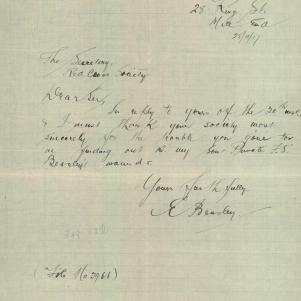 28 King St.
Mile End
25/9/17
The Secretary,
Red Cross Society
Dear Sir,
In reply to yours of the 20th inst,
& I must thank your society most
sincerely for the trouble you gone to
re finding out as my son Private F.S
Beasley's wounds.
Yours faithfully,
E Beasley.
(Fols No. 2961)